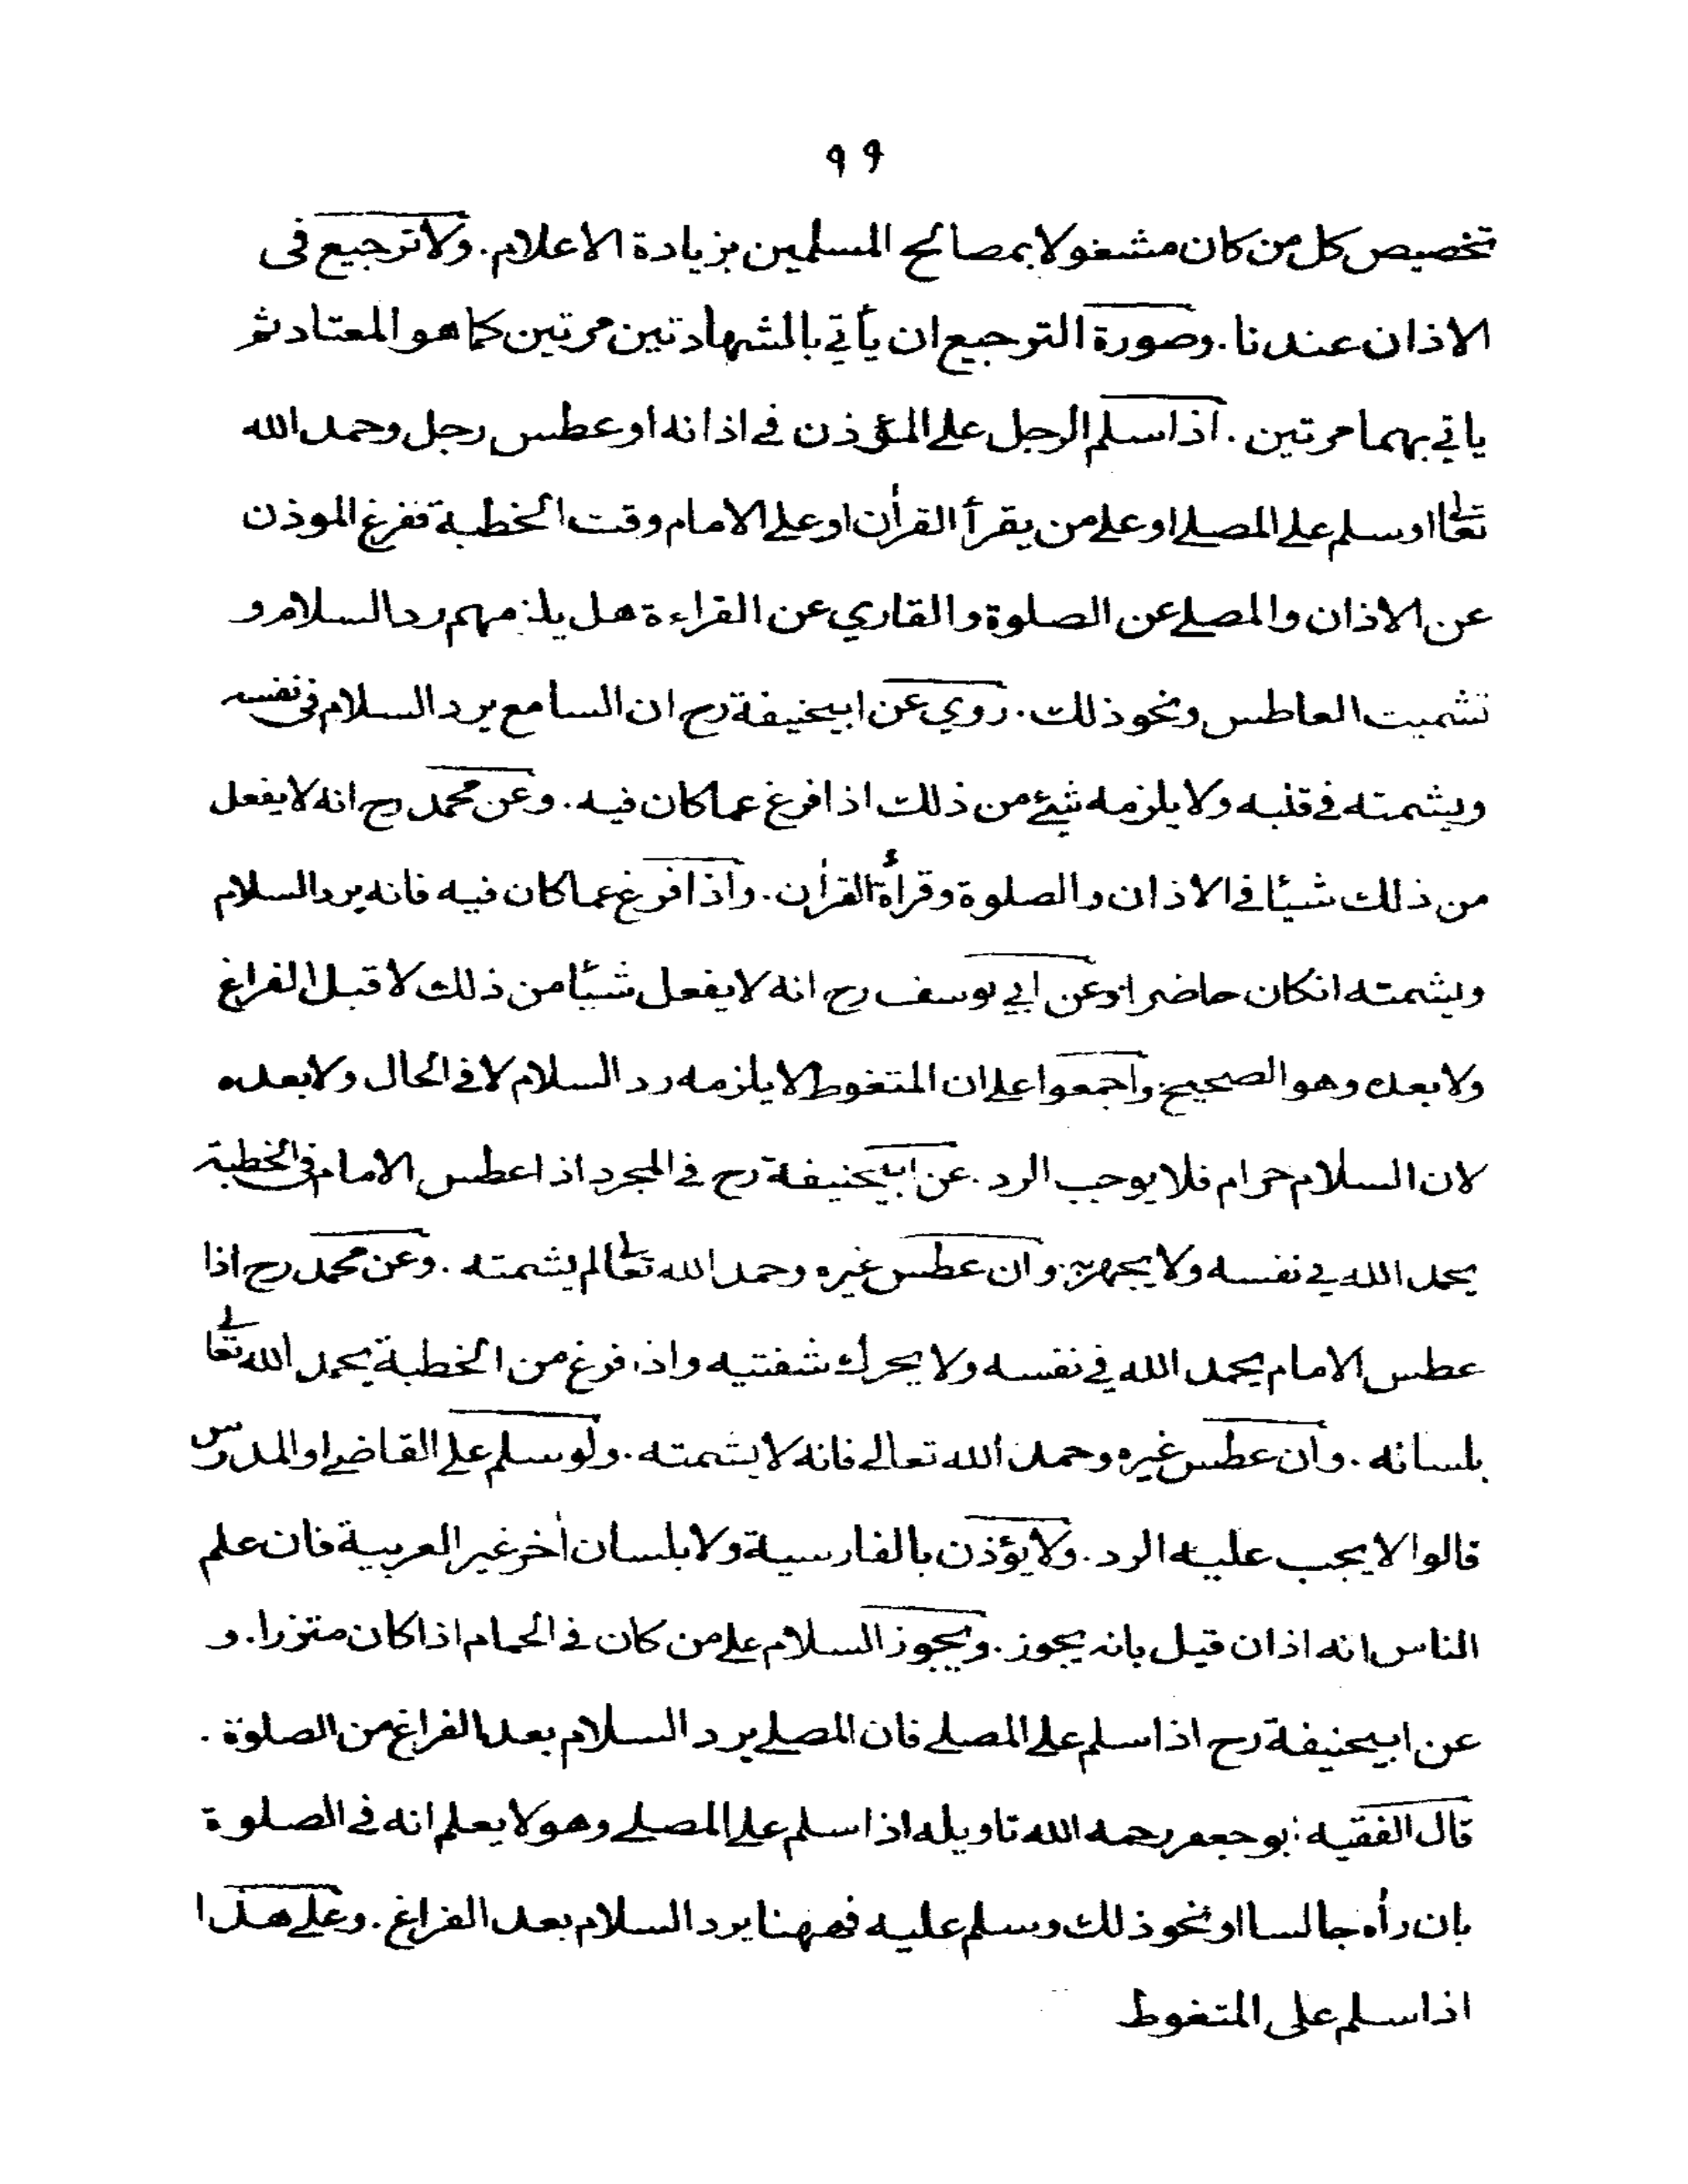 ٩٩
تخصيص كل من كان مشغولا بمصالح المسلمين بزيادة الاعلام. ولا ترجيع فى
الاذان عندنا. وصورة الترجيع ان يأتي بالشهادتين مرتين كما هو المعتاد ثم
ياتي بهما مرتين. اذا سلم الرجل علے المؤذن في اذانه او عطس رجل وحمد الله
تعالى او سلم علے المصلے او علے من يقرأ القرأن او علے الامام وقت الخطبة ففرغ الموذن
عن الاذان والمصلے عن الصلوة والقاري عن القراءة هل يلزمهم رد السلام و
تشميت العاطس ونحو ذلك. روي عن ابيحنيفة رح ان السامع يرد السلام فى نفسه
ويشمته في قلبه ولا يلزمه شيئ من ذلك اذا فرغ عما كان فيه. وعن محمد رح انه لا يفعل
من ذلك شيئا في الاذان والصلوة وقرأة القرأن. واذا فرغ عما كان فيه فانه يرد السلام
ويشمته انكان حاضرا. وعن ابي يوسف رح انه لا يفعل شيئا من ذلك لا قبل الفراغ
ولا بعده وهو الصحيح. واجمعوا علے ان المتغوط لا يلزمه رد السلام لا في الحال ولا بعده
لان السلام حرام فلا يوجب الرد. عن ابيحنيفة رح في المجرد اذا عطس الامام فى الخطبة
يحمد الله في نفسه ولا يجهر به. وان عطس غيره وحمد الله تعالى لم يشمته. وعن محمد رح اذا
عطس الامام يحمد الله في نفسه ولا يحرك شفتيه واذا فرغ من الخطبة يحمد الله تعالى
بلسانه. وان عطس غيره وحمد الله تعالے فانه لا يشمته. ولو سلم علے القاضے او المدرس
قالوا لا يجب عليه الرد. ولا يؤذن بالفارسية ولا بلسان أخر غير العربية فان علم
الناس انه اذان قيل بانه يجوز. ويجوز السلام علے من كان في الحمام اذا كان متزرا. و
عن ابيحنيفة رح اذا سلم علے المصلے فان المصلے يرد السلام بعد الفراغ من الصلوة.
قال الفقيه ابو جعفر رحمه الله تاويله اذا سلم علے المصلے وهو لا يعلم انه في الصلوة
بان رأه جالسا او نحو ذلك وسلم عليه فههنا يرد السلام بعد الفراغ. وعلے هذا
اذا سلم على المتغوط